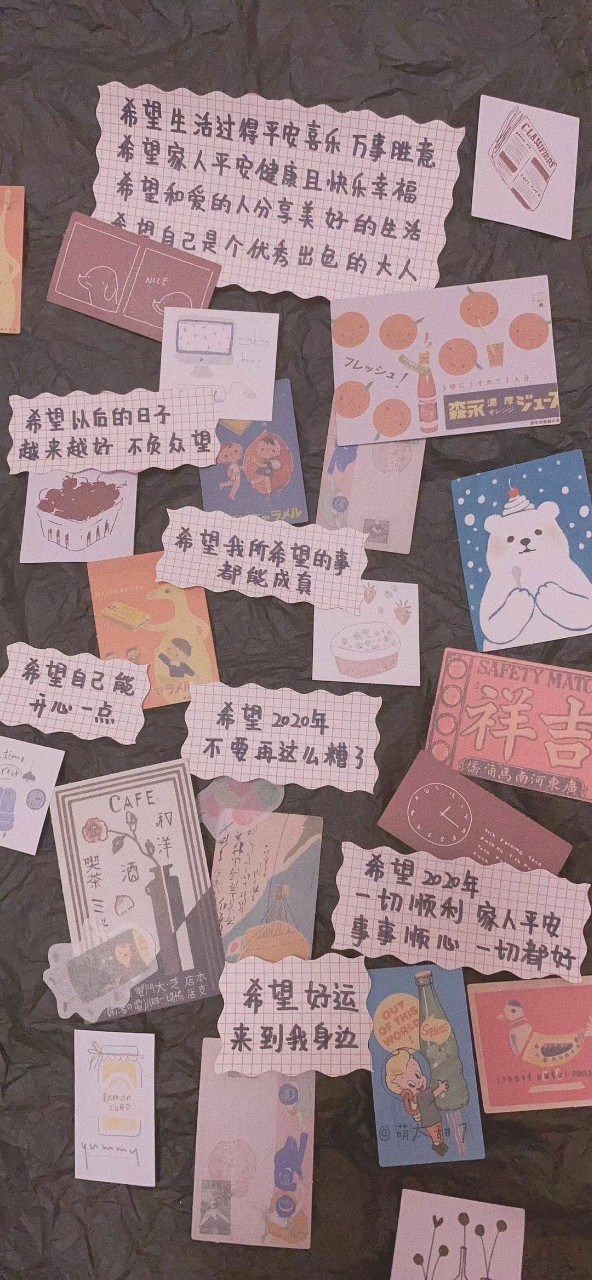 希望生活过得平安喜乐 万事胜意
希望家人平安健康且快乐幸福
希望和爱的人分享美好的生活
希望自己是个优秀出包的大人
CLASIFIEDS
NICE
フレッシュ!
森永 濃厚 オレンジ ジュース
希望以后的日子
越来越好 不负众望
ラメル
希望我所希望的事
都能成真
ラメル
希望自己能
开心一点
希望2020年
不要再这么糟了
SAFETY MATC
祥吉
廣東河南馬涌橋
time
rest
CAFE
和洋
酒
喫茶
希望2020年
一切顺利 家人平安
事事顺心 一切都好
希望好运
来到我身边
OUT
OF THIS
WORLD
lemon
CURD
yummy